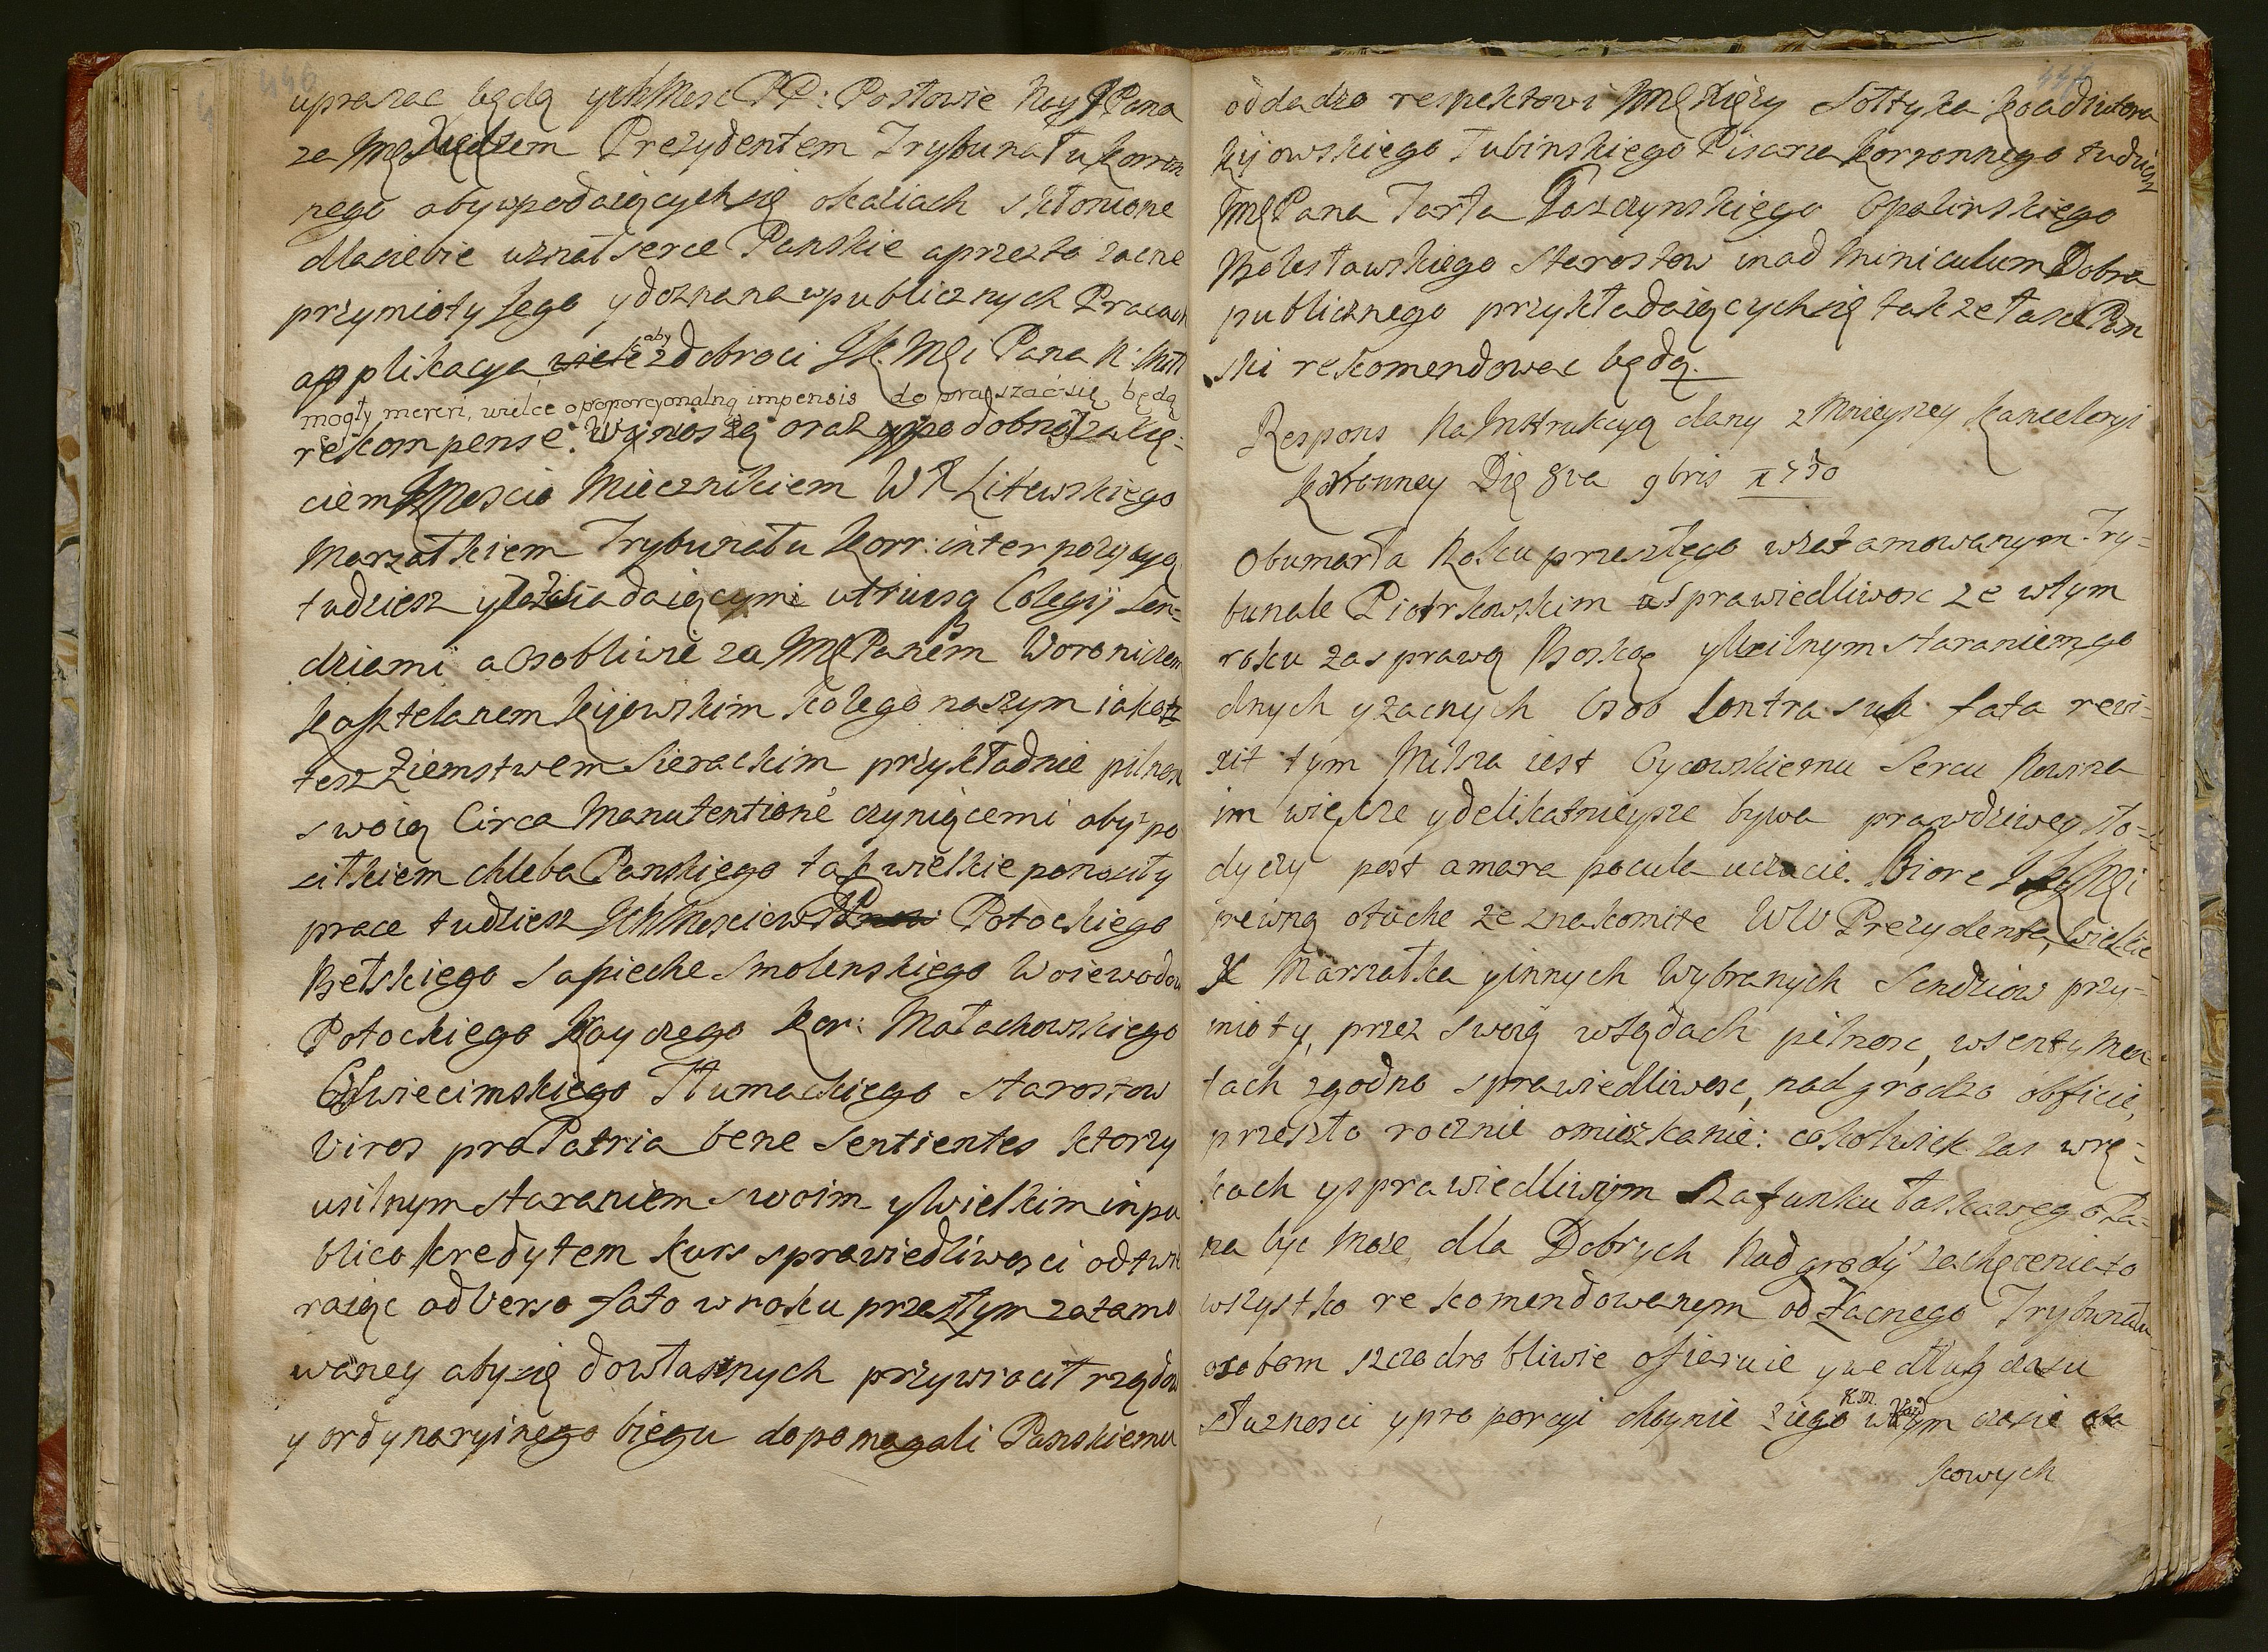 446
upraszac będą ychMosc PP: Posłowie Nay J Pana
za Mę Xiędzem Prezydentem Trybunału Korron
nego aby wpodaiących się okaziach skłonione
dla ciebie uznał serce Panskie a przezto zacne
przymioty Jego y doznana w publicznych Pracach
applikacya wiele aby zdobroci JK Mci Pana N: Mił
mogły mereri, wielce oproporcyonalną impensis do praszać się będą
rekompensę. Wnoszą oraz ypodobną za Xię:
ciem JMoscio Miecznikiem W X Litewskiego
Marszałkiem Trybunału Korr: interpozycyą
tudziesz y Zasiadaiącymi utriusq Colegij Sen-
dziami a Osobliwie za MPanem Woroniczem
Kasztelanem Kijowskim Kolego naszym iakotz
tesz Ziemstwem Sierackim przykładnie pilnosc
swoią Circa Manutentione czyniącemi aby z po
siłkiem chleba Panskiego tak wielkie ponosiły
prace tudziesz JchMosciow Potockiego
Bełskiego Sapieche Smolenskiego Woiewodow
Potockiego Krayczego Kor: Małachowskiego
Oswiecimskiego Tłumackiego Starostow
Viros pro Patria bene Sentientes ktorzy
usilnym staraniem swoim y Wielkim in pu
blico kredytem kurs sprawiedliwosci odtwo
raiąc adverso fato w roku przeszłym zatamo
waney aby się dowłasnych przywrocił rządow
y ordynaryinego biegu dopomagali Panskiemu
447
oddadzo respektowi Mę Xiędzy Sołtyka Koadiutora
Kijowskiego Łubinskiego Pisarza Korronnego tudziesz
JmęPana Tarła Goszczynskiego Opalinskiego
Bolesławskiego Starostow in ad Miniculum Dobra
publicznego przykładaiących się także łasce Pan
ski rekomendowac będą.
Respons Na Instrukcyą dany z Mnieyszey Kancelaryi
Koronney Die 8va 9bris 1750
Obumarła Roku przeszłego w zatamowanym Try=
bunale Piotrkowskim sprawiedliwosc ze w tym
roku za sprawą Boską y Usilnym staraniem go
dnych y zacnych Osob Contra sua fata revi=
xit tym Milsza iest Oycowskiemu Sercu Nowina
im większe y delikatnieysze bywa prawdziwey sło=
dyczy post amara pocula uczucie. Biore JKMci
pewną otuche ze znakomite WW Prezydenta, Wielkie
X Marszałka y innych Wybranych Sendziow przy=
mioty, przez swoią w sądach pilnosc, w sentymen
tach zgodno sprawiedliwosc, nadgrodzo obficie,
przeszło rocznie omieszkanie: cokolwiek zas w rę=
kach y sprawiedliwym Szafunku łaskawego Pa=
na byc Może, dla Dobrych Nadgrody zachęcenie to
wszystko rekomendowanym od Zacnego Trybunału
osobom szczodrobliwie ofieruie y według czasu
słusznosci y proporcyi choynie w tym czasie
kowych